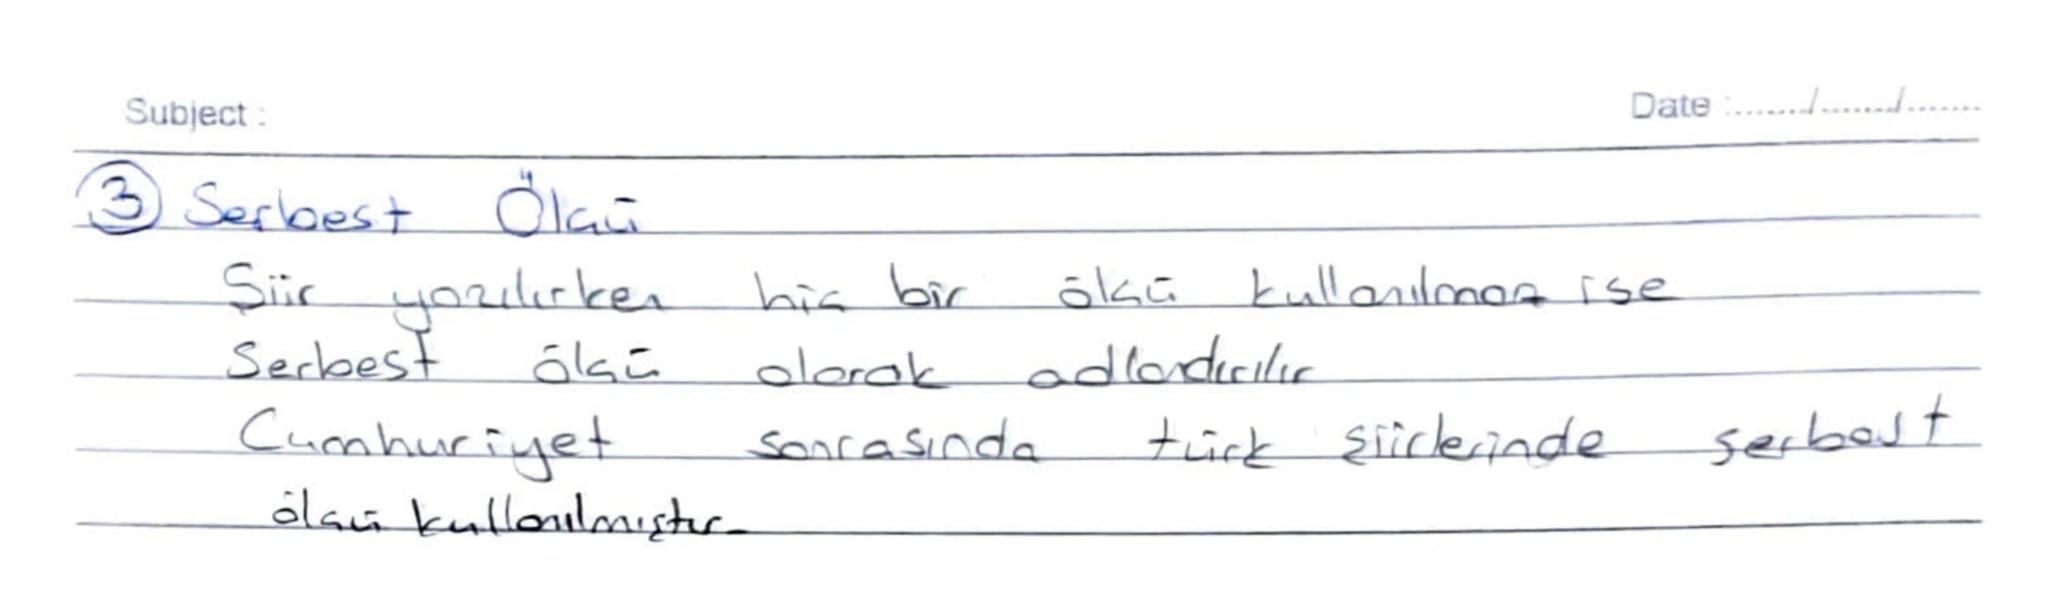 Subject :
Date :......./......./.......
③ Serbest Ölçü
Şiir yazılırken hiç bir ölçü kullanılmaz ise
Serbest ölçü olarak adlandırılır
Cumhuriyet sonrasında türk şiirlerinde serbest
ölçü kullanılmıştır.